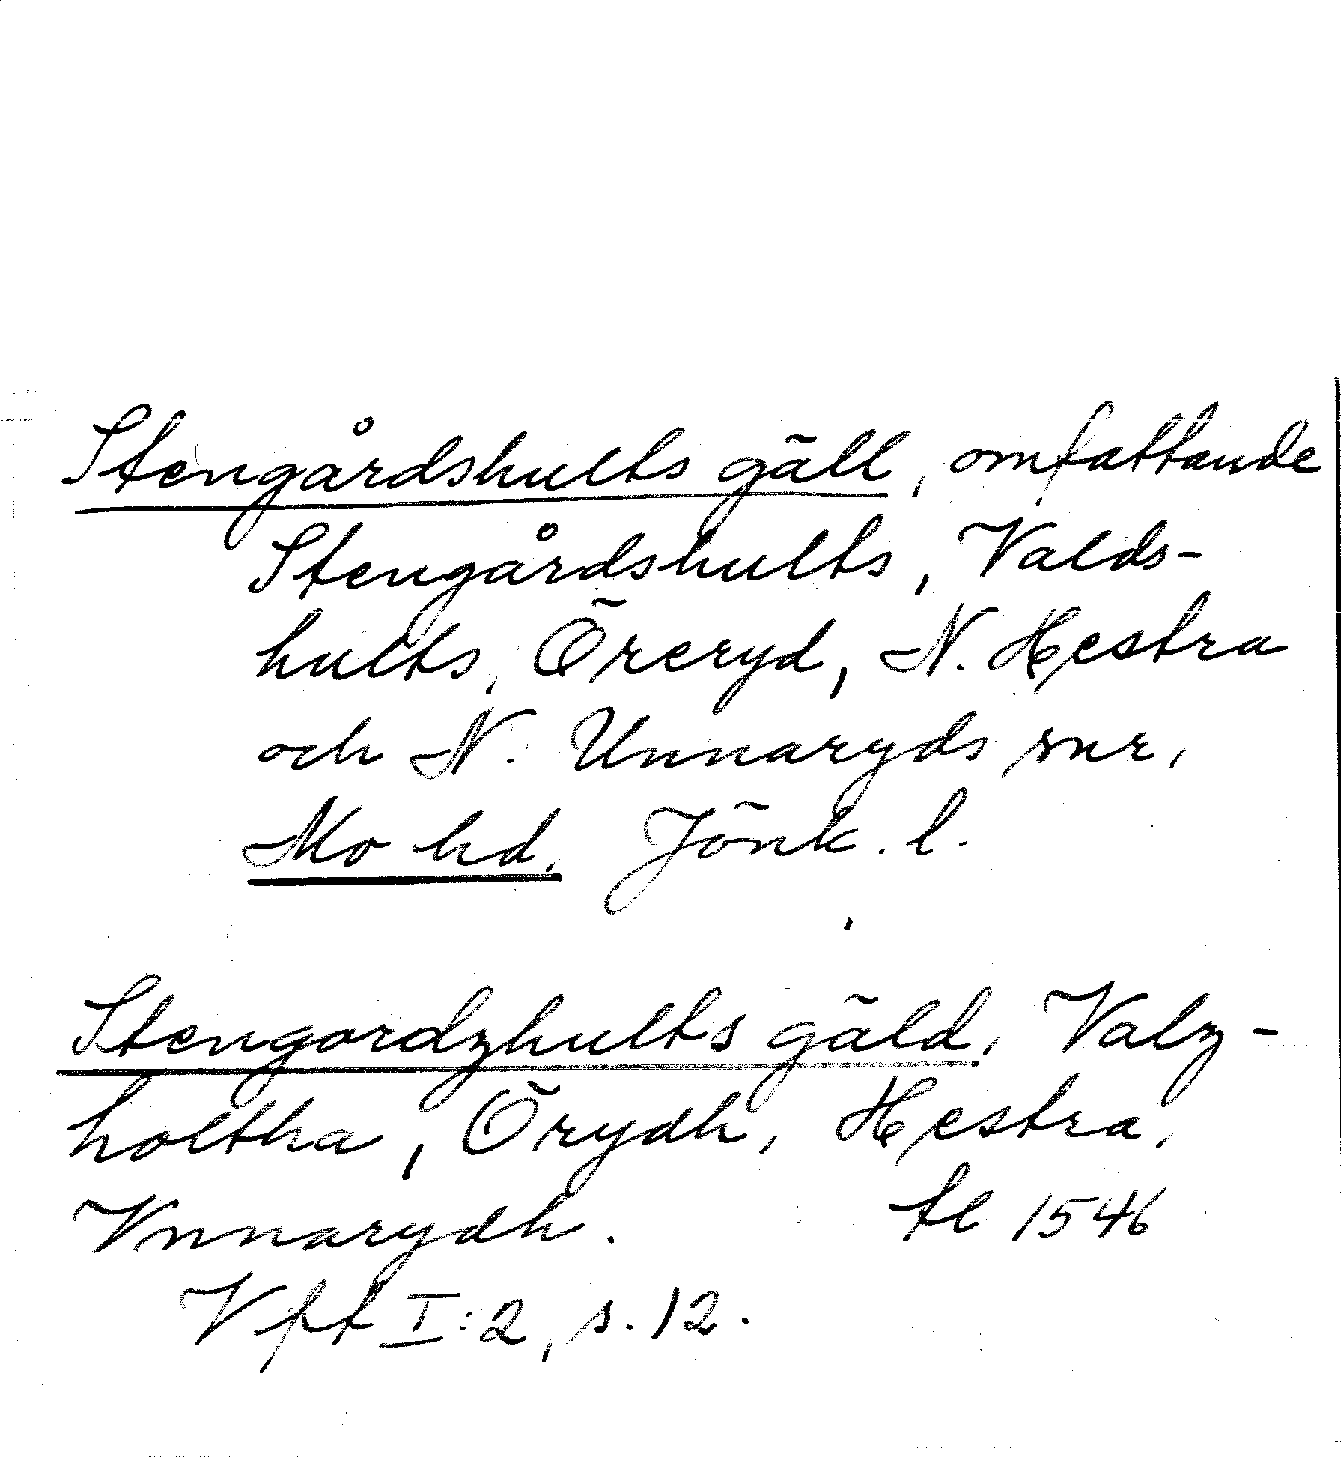 Stengårdshults gäll, omfattande
Stengårdshults, Valds-
hults, Öreryd, N. Hestra
och N. Unnaryds snr,
Mo hd. Jönk. l.
Stengordzhults gäld, Valz-
holtha, Örydh, Hestra,
Vnnarydh. tl 1546
Vft I:2, s. 12.